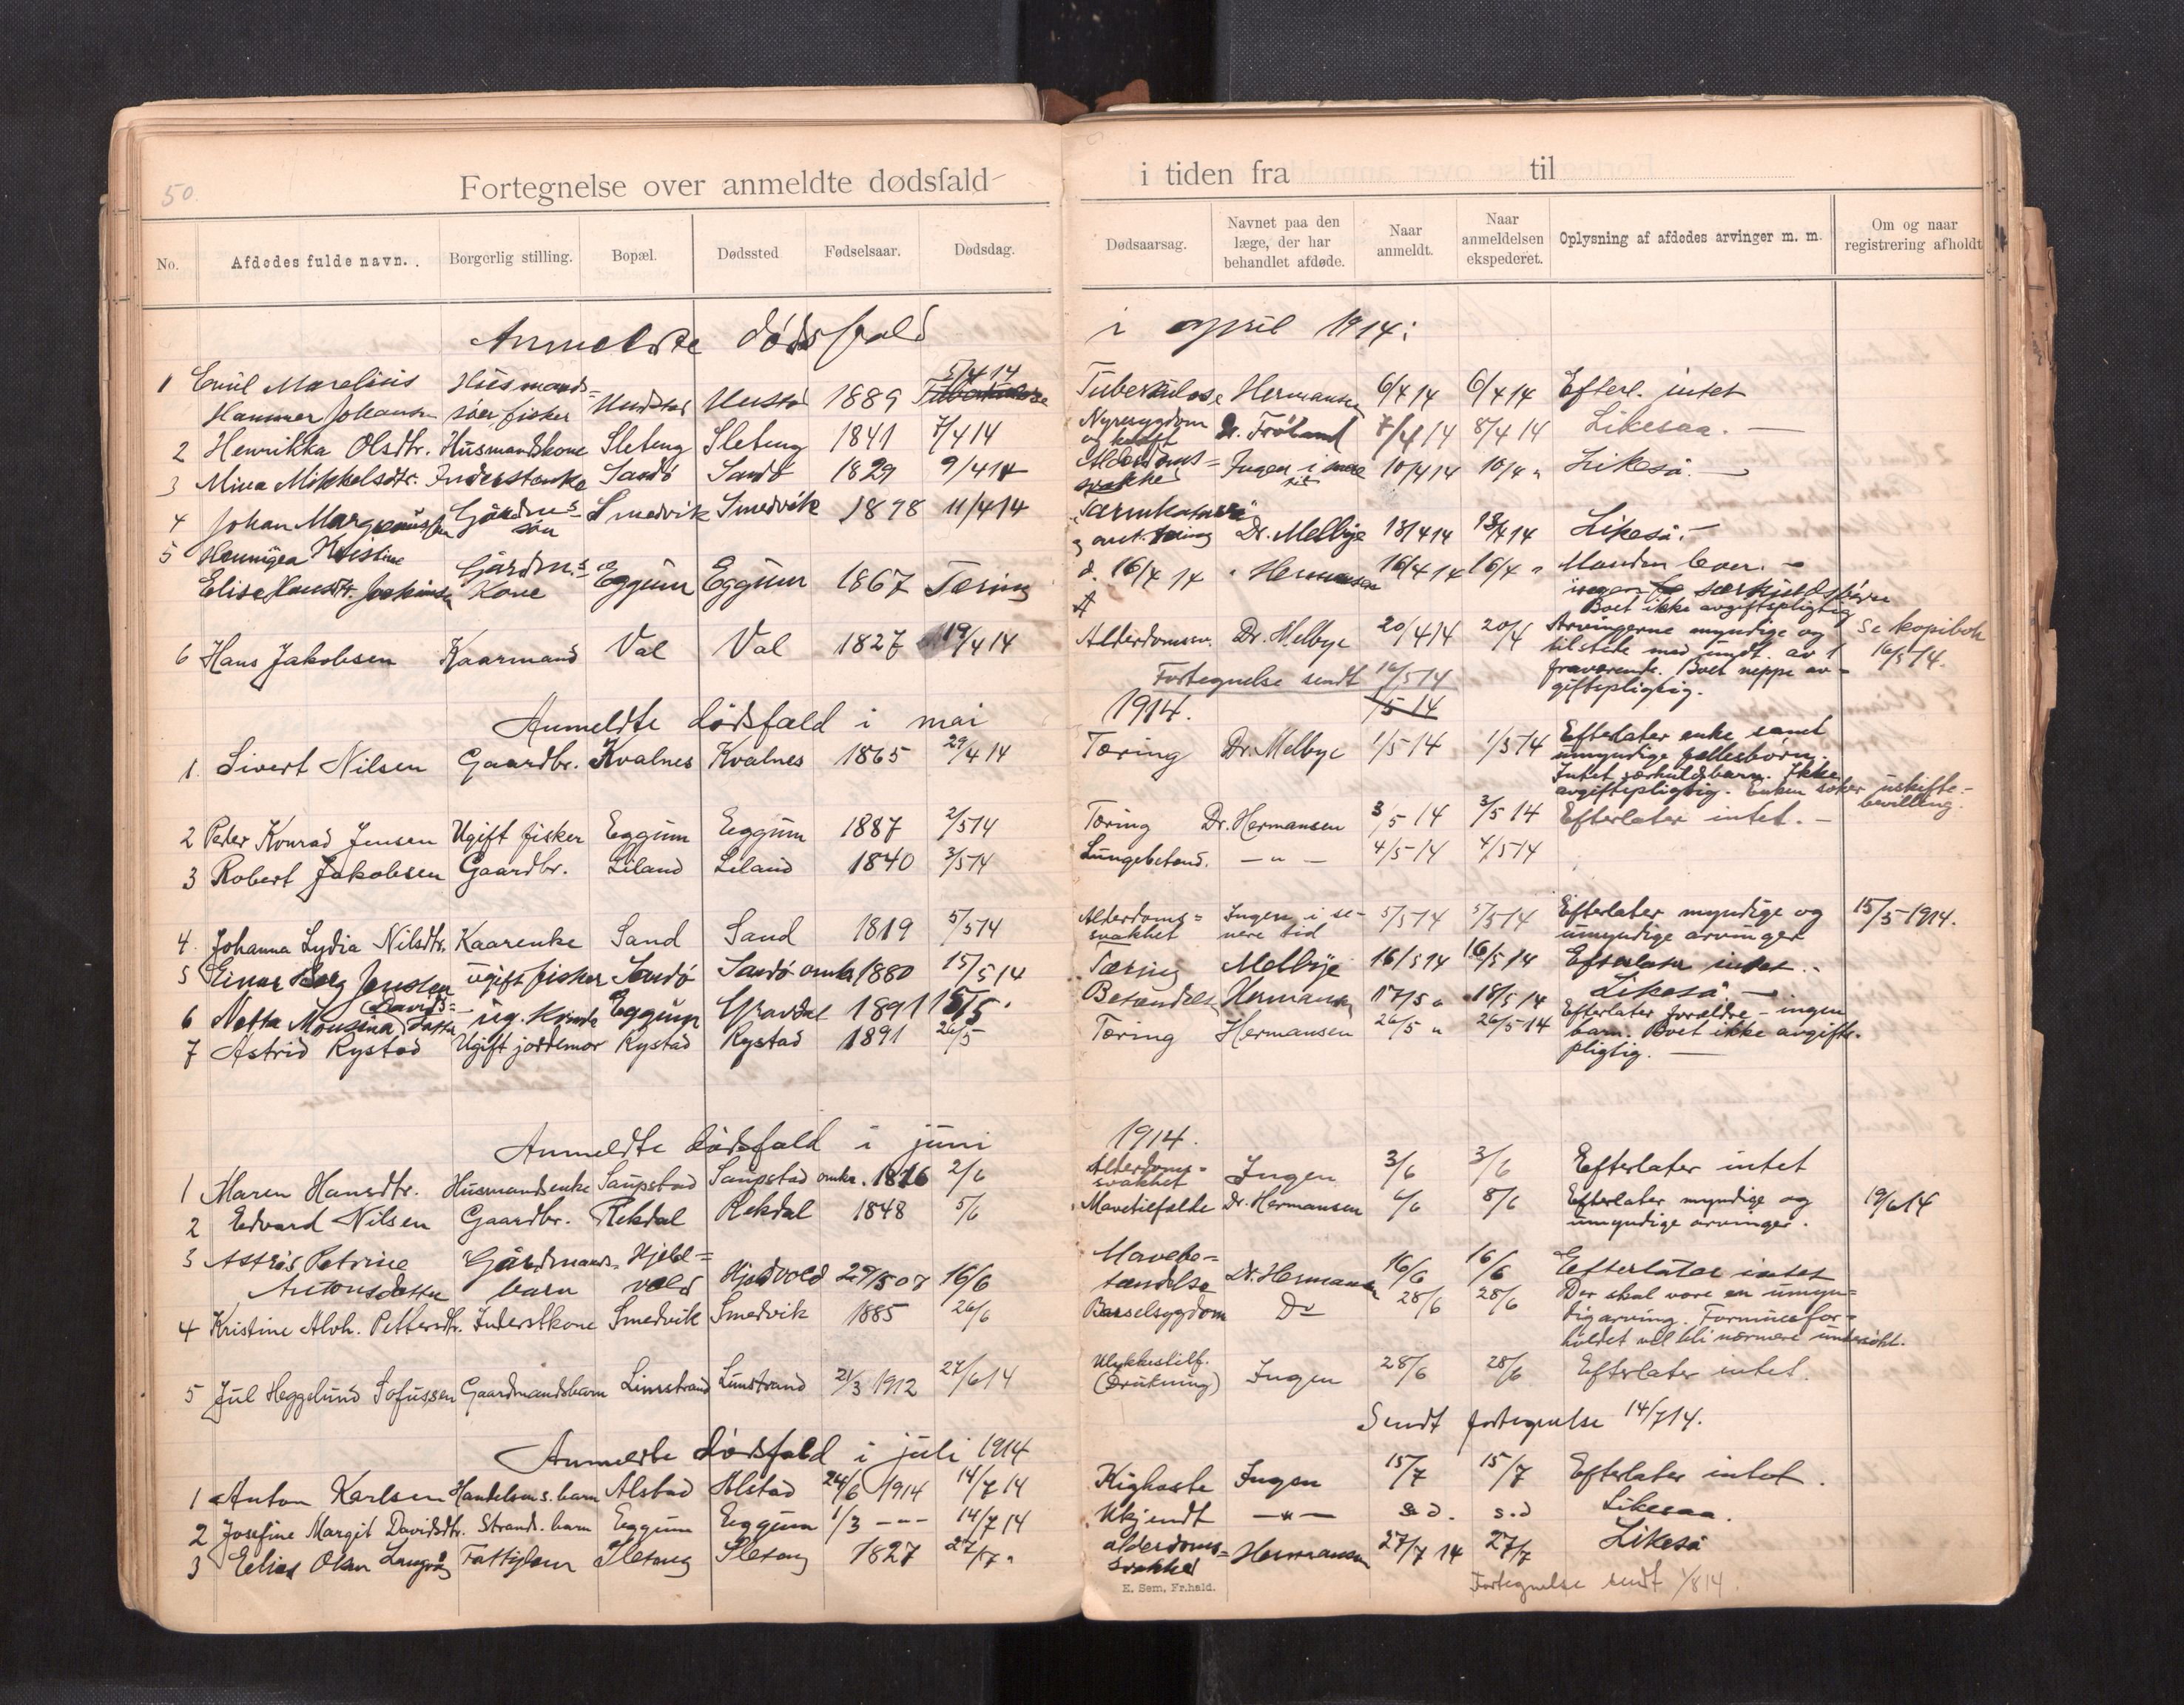 50.
Fortegnelse over anmeldte dødsfald
i tiden fra til
No. Afdødes fulde navn. Borgerlig stilling. Bopæl. Dødssted Fødselsaar. Dødsdag.
Dødsaarsag. Navnet paa den læge, der har behandlet afdøde. Naar anmeldt. Naar anmeldelsen ekspederet. Oplysning af afdødes arvinger m. m. Om og naar registrering afholdt
Anmeldte dødsfald i april 1914:
1 Emil Marelius Husmands= 5/4 14
Hammer Johansen søn fisker 1889 Tuberkulose Tuberkulose Hermansen 6/4 14 6/4 14 Efterl. intet
2 Henrikka Olsdtr. Husmandskone Sleteng Sleteng 1841 7/4 14 Nyresygdom Dr. 7/4 14 8/4 14 Likesaa. —
3 Mina Mikkelsdtr. Inderstenke Sandö Sandö 1829 9/4 14 Alderdoms= svakhed Ingen i 10/4 14 10/4 " Likeså. —
4 Johan Gårdm.s søn Smedvik Smedvik 1898 11/4 14 Dr. Melbye 13/4 14 13/4 14 Likeså. —
5 Kristine
Elise Gårdm.s Kone Eggum Eggum 1867 Tæring d. 16/4 14 " Hermansen 16/4 14 16/4 " Manden lever. —
ingen særkuldsbörn
Boet ikke avgiftspligtig
6 Hans Jakobsen Kaarmand Val Val 1827 19/4 14 Alderdomssv. Dr. Melbye 20/4 14 20/4 Arvingerne myndige og
tilstede med undt. av 1
fraværende. Boet neppe av-
giftspligtig.
Se kopibok
16/5 14.
Fortegnelse sendt 16/5 14
Anmeldte dødsfald i mai 1914. /5 14
1. Sivert Nilsen Gaardbr. Kvalnes Kvalnes 1865 29/4 14 Tæring Dr. Melbye 1/5 14 1/5 14 Efterlater enke samt
umyndige fellesbörn.
Intet særkuldsbarn. Ikke
avgiftspligtig. Enken søker uskifte-
bevilling.
2 Peder Konrad Jensen Ugift fisker Eggum Eggum 1887 2/5 14 Tæring Dr. Hermansen 3/5 14 3/5 14 Efterlater intet. —
3 Robert Jakobsen Gaardbr. Liland Liland 1840 3/5 14 Lungebetænd. — " — 4/5 14 4/5 14
4. Johanna Lydia Nilsdtr. Kaarenke Sand Sand 1819 5/5 14 Alderdoms= svakhet Ingen i se- nere tid 5/5 14 5/5 14 Efterlater myndige og
umyndige arvinger 15/5 1914.
5 Einar Berg Jensen ugift fisker Sandö Sandö omkr 1880 15/5 14 Tæring Melbye 16/5 14 16/5 14 Efterlater intet. -
6 Netta Monsina Davids= datter ug. Kvinde Eggum Gravdal 1891 15/5. Betændelse Hermansen 17/5 " 18/5 14 Likeså —
7 Astrid Rystad Ugift jordemor Rystad Rystad 1891 26/5 Tæring Hermansen 26/5 " 26/5 14 Efterlater forældre - ingen
barn. Boet ikke avgifts-
pligtig. —
Anmeldte dødsfald i juni 1914.
1 Maren Hansdtr. Husmandsenke Saupstad Saupstad omkr. 1826 2/6 Alderdoms= svakhet Ingen 3/6 3/6 Efterlater intet
2 Edvard Nilsen Gaardbr. Rekdal Rekdal 1848 5/6 Mavetilfælde Dr. Hermansen 6/6 8/6 Efterlater myndige og
umyndige arvinger. 19/6 14
3 Astrid Petrine
Antonsdatter Gårdmands barn Hjeld= vold Hjeldvold 29/5 07 16/6 Mavebe= tændelse Dr. Hermansen 16/6 16/6 Efterlater intet
4 Kristine Alvh. Pettersdtr. Inderstkone Smedvik Smedvik 1885 26/6 Barselsygdom Do 28/6 28/6 Der skal være en umyn=
dig arving. Formuesfor-
holdet vil bli nærmere undersøkt.
5 Jul Heggelund Sofussen Gaardmandsbarn Limstrand Limstrand 21/3 1912 27/6 14 Ulykkestilf. (Drukning) Ingen 28/6 28/6 Efterlater intet.
Sendt fortegnelse 14/7 14.
Anmeldte dødsfald i juli 1914
1 Anton Karlsen Handelsm s. barn Alstad Alstad 24/6 1914 14/7 14 Kighoste Ingen 15/7 15/7 Efterlater intet.
2 Josefine Margit Davidsdtr. Strands. barn Eggum Eggum 1/3 - " - 14/7 14 Ukjendt — " — s.d. s.d Likesaa.
3 Elias Olsen Fattiglem Sleteng Sleteng 1827 27/7 " alderdoms= svakhed Hermansen 27/7 14 27/7 Likeså
Fortegnelse sendt 1/8 14.
E. Sem, Fr.hald.